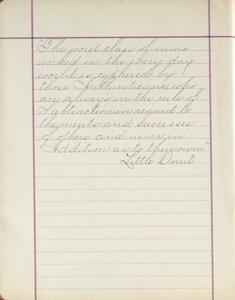 "The worst class of sums
worked in the every day
world is cyphered by
those Arithmeticians who
are always in the rule of
Subtraction in regard to
the merits and successes
of others and never in
Addition as to their own"
Little Dorrit